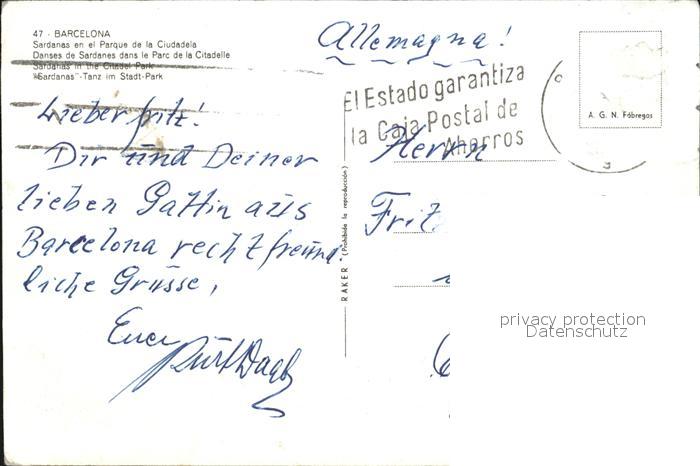 47 - BARCELONA
Sardanas en el Parque de la Ciudadela
Danses de Sardanes dans le Parc de la Citadelle
Sardanas in the Citadel Park
"Sardanas"-Tanz im Stadt-Park
Allemagna!
El Estado garantiza
la Caja Postal de
Ahorros
A. G. N. Fábregas
Lieber Fritz!
Dir und Deiner
lieben Gattin aus
Barcelona recht freund-
liche Grüsse,
Euer
Kurt
RAKER (Prohibida la reproducción)
Herrn
Fritz
privacy protection
Datenschutz